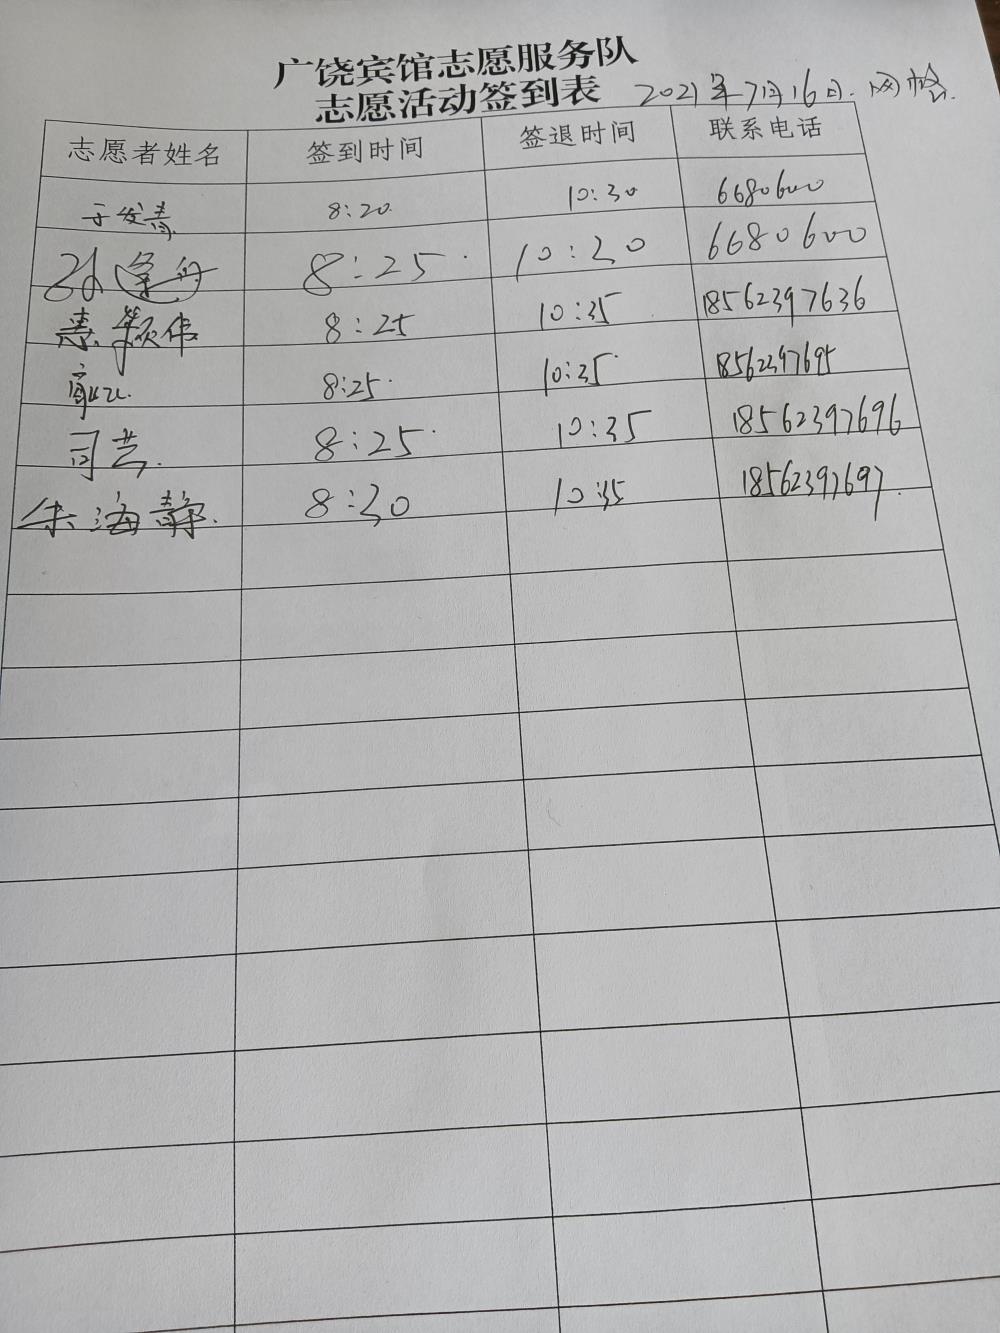 广饶宾馆志愿服务队
志愿活动签到表 2021年7月16日.
志愿者姓名 签到时间 签退时间 联系电话
于发青 8:20 10:30 6680600
8:25 10:20 6680600
8:25 10:35 18562397636
8:25 10:35 18562397695
司芸 8:25 10:35 18562397696
朱海静 8:30 10:35 18562397697